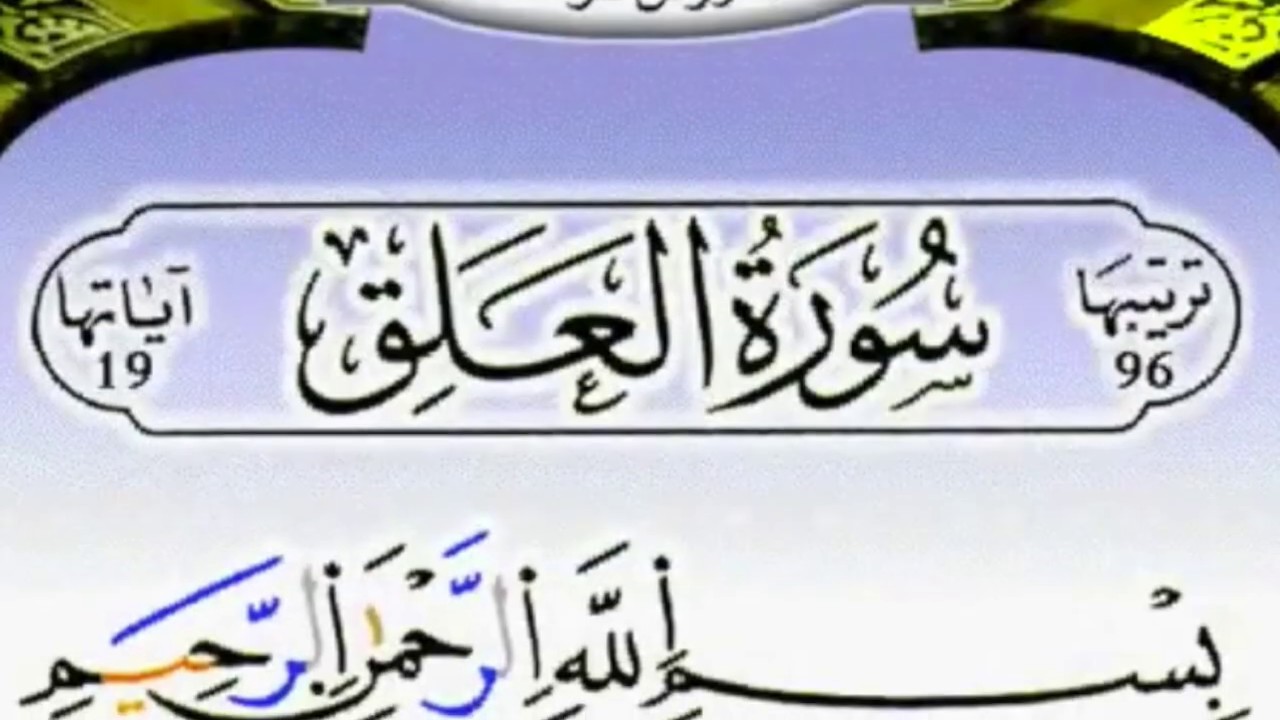 تَرتيبُهَا
96
سُورَةُ العَلَقِ
آيَاتها
19
بِسْمِ ٱللَّهِ ٱلرَّحْمَٰنِ ٱلرَّحِيمِ